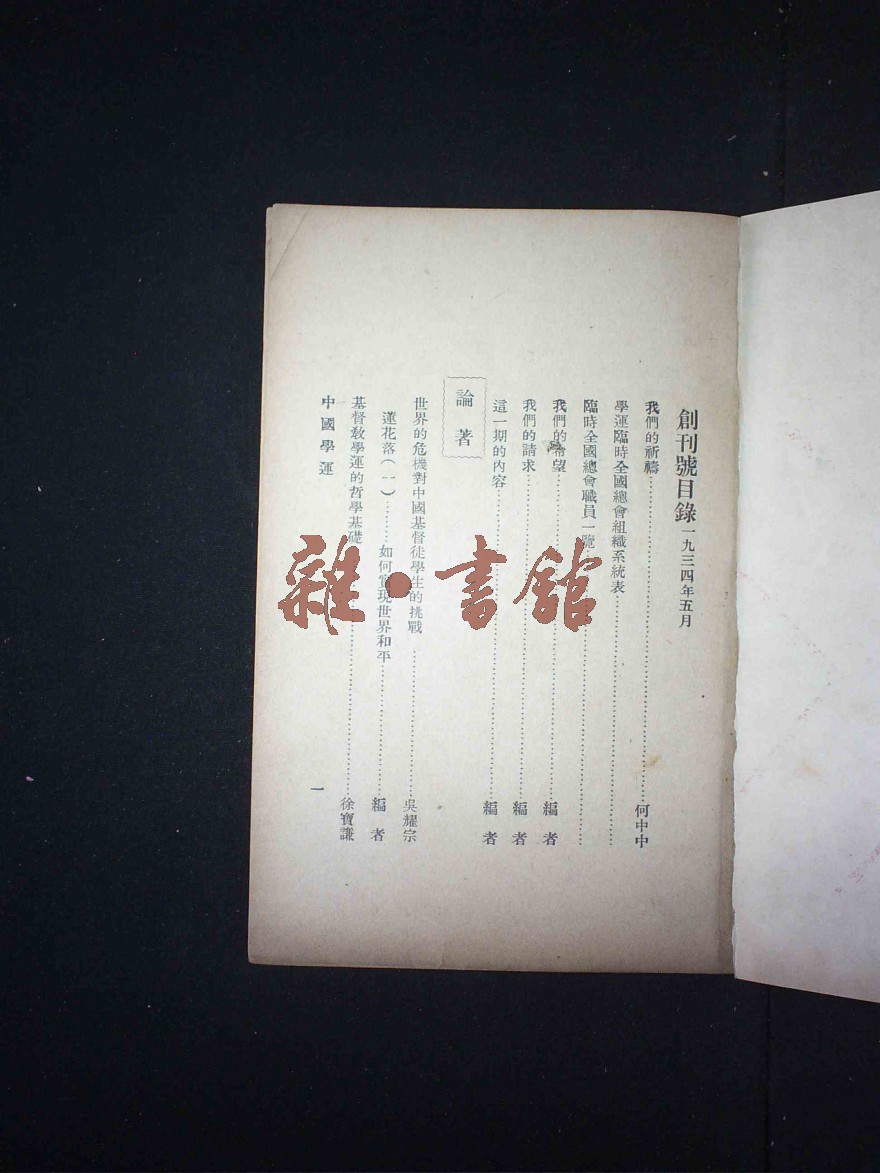 創刊號目錄 一九三四年五月
我們的祈禱……何中中
學運臨時全國總會組織系統表……
臨時全國總會職員一覽……
我們的希望……編者
我們的請求……編者
這一期的內容……編者
論著
世界的危機對中國基督徒學生的挑戰……吳耀宗
蓮花落(一)……如何實現世界和平……編者
基督教學運的哲學基礎……徐寶謙
中國學運
一
雜·書館